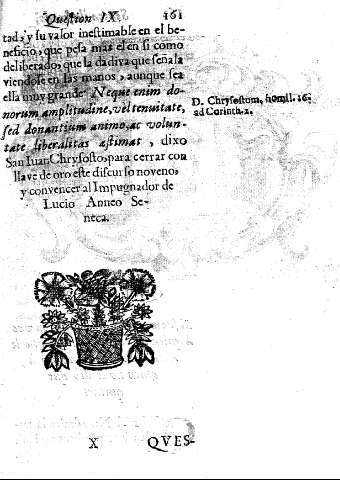 Question IX. 161
tad, y su valor inestimable en el be-
neficio, que pesa mas el en si como
deliberado, que la dadiva que señala
viendose en las manos, aunque sea
ella muy grande. Neque enim do-
norum amplitudine, vel tenuitate,
sed donantium animo, ac volun-
tate liberalitas æstimat, dixo
San Iuan Chrysosto, para cerrar con
llave de oro este discurso noveno,
y convencer al Impugnador de
Lucio Anneo Se-
neca.
D. Chrysostom, homil. 16.
ad Corinth. 2.
X QVES-